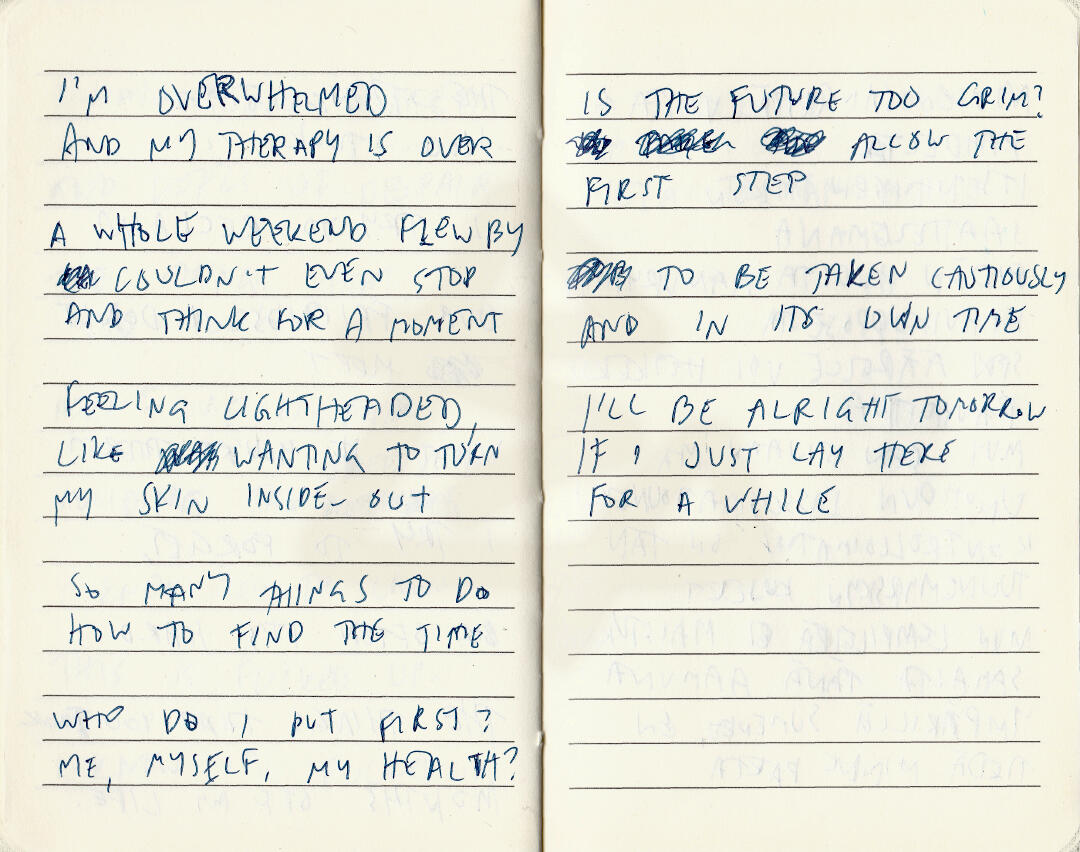 I'M OVERWHELMED
AND MY THERAPY IS OVER
A WHOLE WEEKEND FLEW BY
COULDN'T EVEN STOP
AND THINK FOR A MOMENT
FEELING LIGHTHEADED,
LIKE WANTING TO TURN
MY SKIN INSIDE-OUT
SO MANY THINGS TO DO
HOW TO FIND THE TIME
WHO DO I PUT FIRST?
ME, MYSELF, MY HEALTH?
IS THE FUTURE TOO GRIM?
ALLOW THE
FIRST STEP
TO BE TAKEN CAUTIOUSLY
AND IN ITS OWN TIME
I'LL BE ALRIGHT TOMORROW
IF I JUST LAY HERE
FOR A WHILE